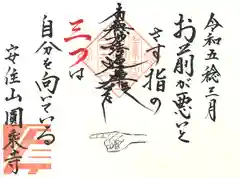 令和五稔三月
お前が悪いと
さす指の
三つは
自分を向いている
安住山圓乗寺